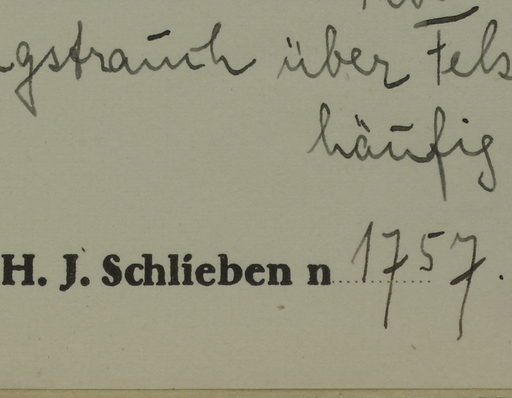 gstrauch über Fels
häufig
H. J. Schlieben n 1757.